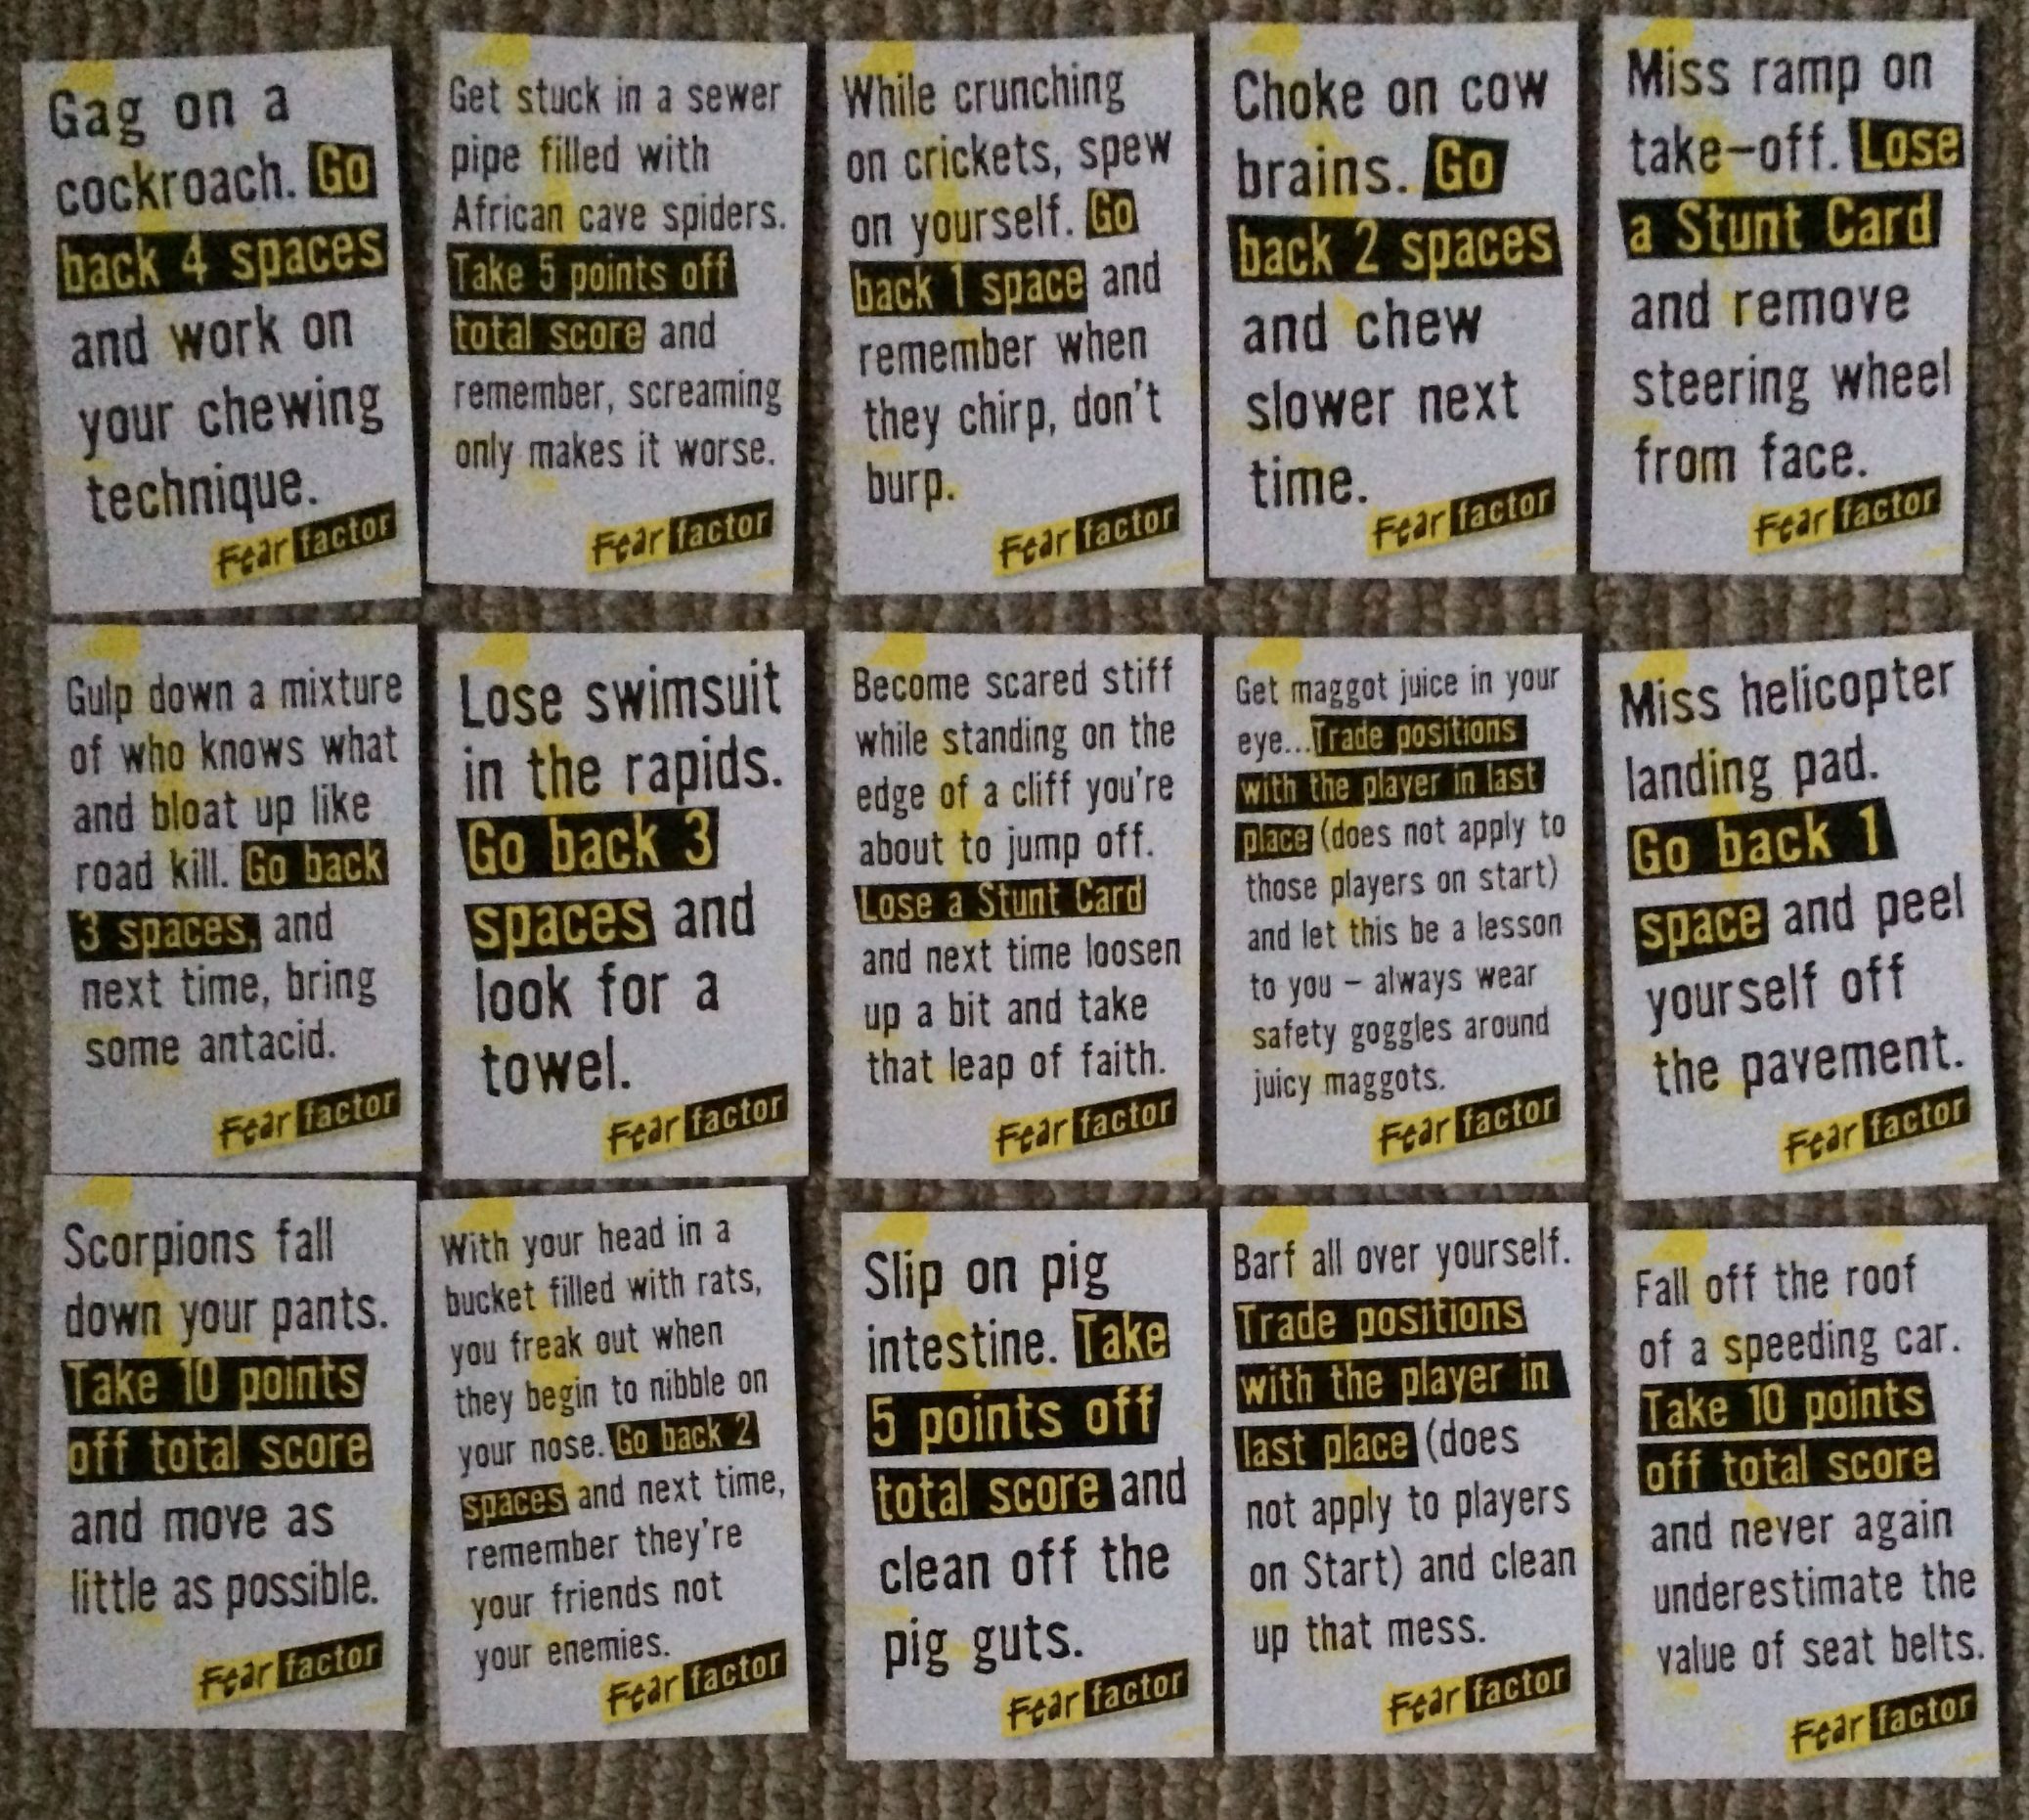 Gag on a
cockroach. Go
back 4 spaces
and work on
your chewing
technique.
Fear factor
Get stuck in a sewer
pipe filled with
African cave spiders.
Take 5 points off
total score and
remember, screaming
only makes it worse.
Fear factor
While crunching
on crickets, spew
on yourself. Go
back 1 space and
remember when
they chirp, don't
burp.
Fear factor
Choke on cow
brains. Go
back 2 spaces
and chew
slower next
time.
Fear factor
Miss ramp on
take-off. Lose
a Stunt Card
and remove
steering wheel
from face.
Fear factor
Gulp down a mixture
of who knows what
and bloat up like
road kill. Go back
3 spaces, and
next time, bring
some antacid.
Fear factor
Lose swimsuit
in the rapids.
Go back 3
spaces and
look for a
towel.
Fear factor
Become scared stiff
while standing on the
edge of a cliff you're
about to jump off.
Lose a Stunt Card
and next time loosen
up a bit and take
that leap of faith.
Fear factor
Get maggot juice in your
eye...Trade positions
with the player in last
place (does not apply to
those players on start)
and let this be a lesson
to you – always wear
safety goggles around
juicy maggots.
Fear factor
Miss helicopter
landing pad.
Go back 1
space and peel
yourself off
the pavement.
Fear factor
Scorpions fall
down your pants.
Take 10 points
off total score
and move as
little as possible.
Fear factor
With your head in a
bucket filled with rats,
you freak out when
they begin to nibble on
your nose. Go back 2
spaces and next time,
remember they're
your friends not
your enemies.
Fear factor
Slip on pig
intestine. Take
5 points off
total score and
clean off the
pig guts.
Fear factor
Barf all over yourself.
Trade positions
with the player in
last place (does
not apply to players
on Start) and clean
up that mess.
Fear factor
Fall off the roof
of a speeding car.
Take 10 points
off total score
and never again
underestimate the
value of seat belts.
Fear factor